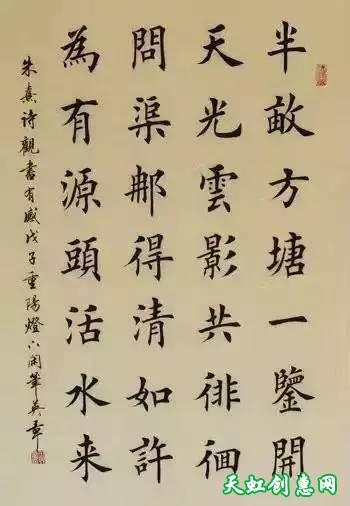 半畝方塘一鑒開
天光雲影共徘徊
問渠那得清如許
為有源頭活水来
朱熹诗觀書有感戊子重陽燈下闲筆英章
天虹创惠网